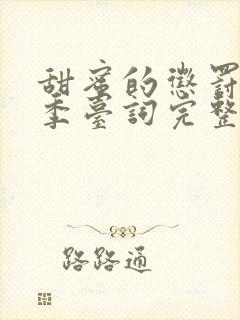 甜蜜的懲罰
季臺詞完整
路路通